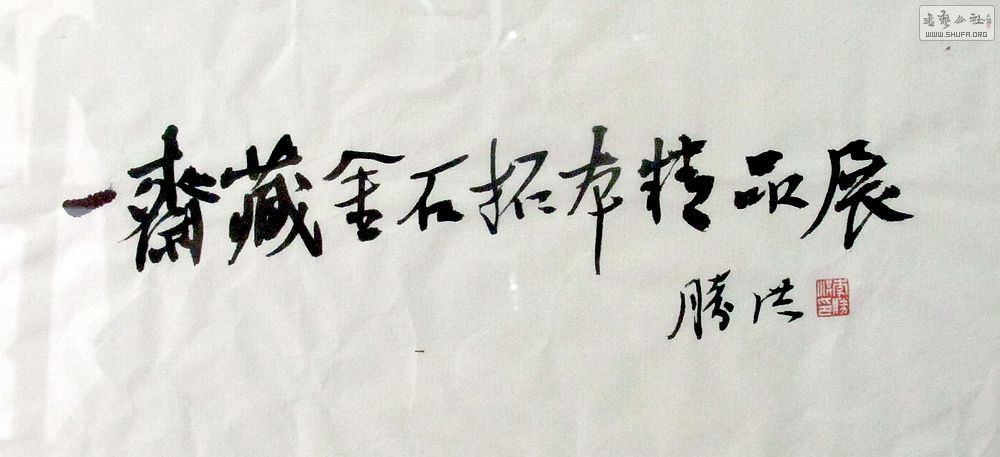 书艺公社
WWW.SHUFA.ORG
一齋藏金石拓本精品展
勝洪
李勝洪印